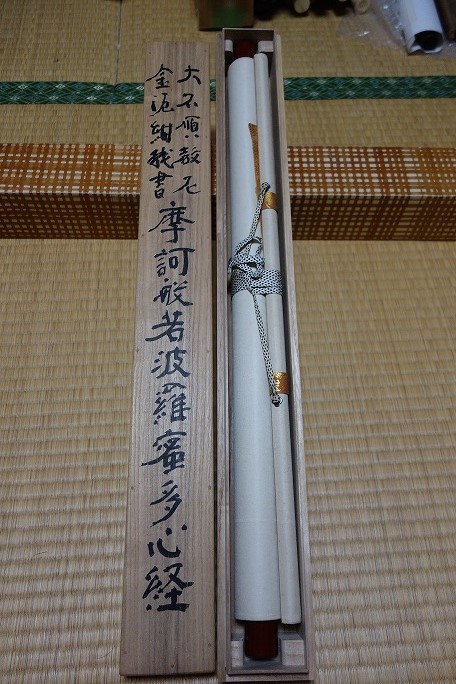 大石順教尼
金泥紺紙書
摩訶般若波羅蜜多心経